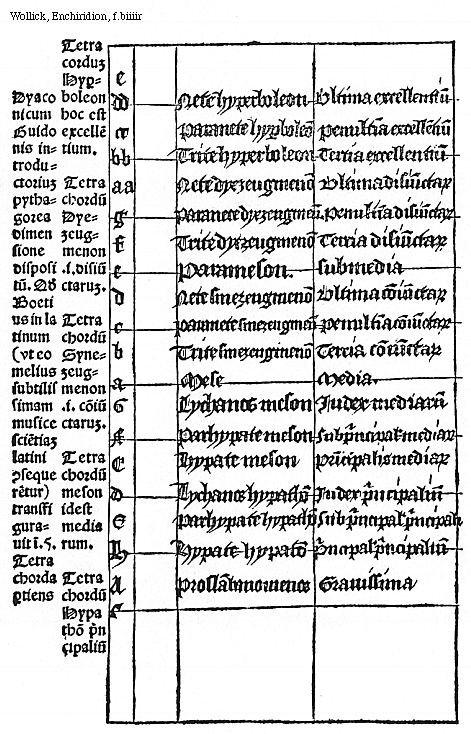 Wollick, Enchiridion, f.biiiir
Dyaco
nicum
Guido
nis in=
trodu=
ctoriuz
pytha=
gorea
dimen
sione
disposi
tū. Ab
Boeti
us in la
tinum
(vt eo
melius
subtilis
simam
musice
sciētiaz
latini
ɔseque
rētur)
transfi
gura=
uit i. 5.
Tetra
chorda
ptiens
Tetra
corduz
Hyp=
boleon
hoc est
excellē
tium.
Tetra
chordū
Dye=
zeug=
menon
.i. disiū
ctaruz.
Tetra
chordū
Syne=
zeug=
menon
.i. cōiū
ctaruz.
Tetra
chordū
meson
idest
media
rum.
Tetra
chordū
Hypa
thō p̄n
cipaliū
e
dd Nete hyperboleon Ultima excellentiū
cc Paranete hyperboleō Penultīa excellētiū
bb Trite hyperboleon Tertia excellentiū
aa Nete dyezeugmenō Ultima disiūctaꝝ
g Paranete dyezeugmenō Penultima disiūctaꝝ
f Trite dyezeugmenō Tercia disiūctaꝝ
e Parameson. submedia
d Nete sinezeugmenō Ultima cōiūctaꝝ
c paranete sinezeugmenō Penultīa cōiūctaꝝ
b Trite sinezeugmenō Tercia cōiūctaꝝ
a Mese Media.
G Lychanos meson Index mediarū
F Parhypate meson Subp̄ncipal' mediaꝝ
E Hypate meson Prīcipalis mediaꝝ
D Lychanos hypathō Index p̄ncipaliū
C Parhypate hypathō Sub p̄ncipal' p̄ncipaliū
♮ Hypate hypatō P̄ncipal' p̄ncipaliū
A Proslābanomenos Gravissima
Γ